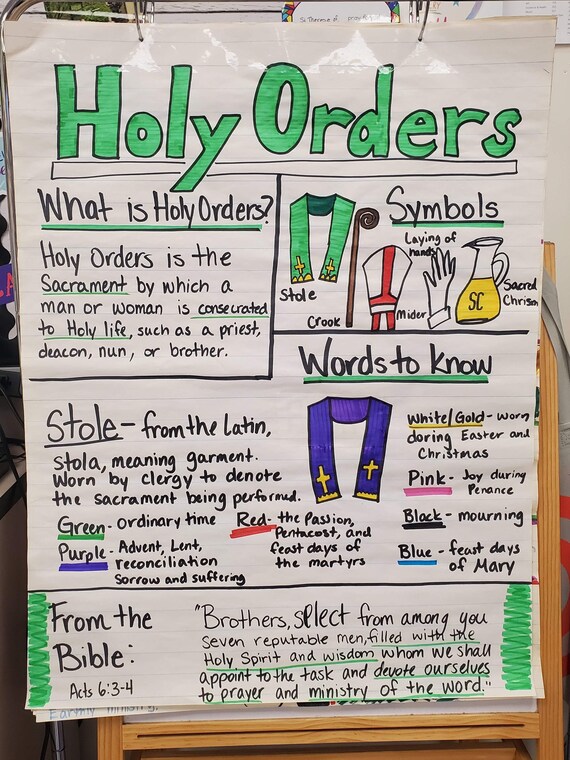 St Therese of
Holy Orders
What is Holy Orders?
Holy Orders is the
Sacrament by which a
man or woman is consecrated
to Holy life, such as a priest,
deacon, nun, or brother.
Symbols
Laying of
hands
Stole
Crook
Mider
SC
Sacred
Chrism
Words to know
Stole - from the Latin,
stola, meaning garment.
Worn by clergy to denote
the sacrament being performed.
Green - ordinary time
Purple - Advent, Lent,
reconciliation
Sorrow and suffering
Red - the Passion,
Pentacost, and
feast days of
the martyrs
White/Gold - worn
doring Easter and
Christmas
Pink - Joy during
Penance
Black - mourning
Blue - feast days
of Mary
From the
Bible:
Acts 6:3-4
"Brothers, select from among you
seven reputable men, filled with the
Holy Spirit and wisdom whom we shall
appoint to the task and devote ourselves
to prayer and ministry of the word."
Earthly ministry.